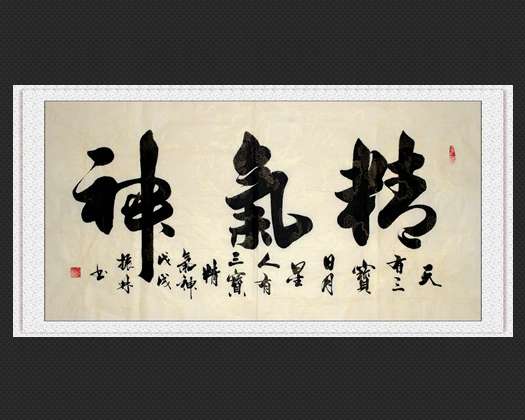 精氣神
天
有三
寶
日月
星
人有
三寶
精
氣神
戊戌
振林
书